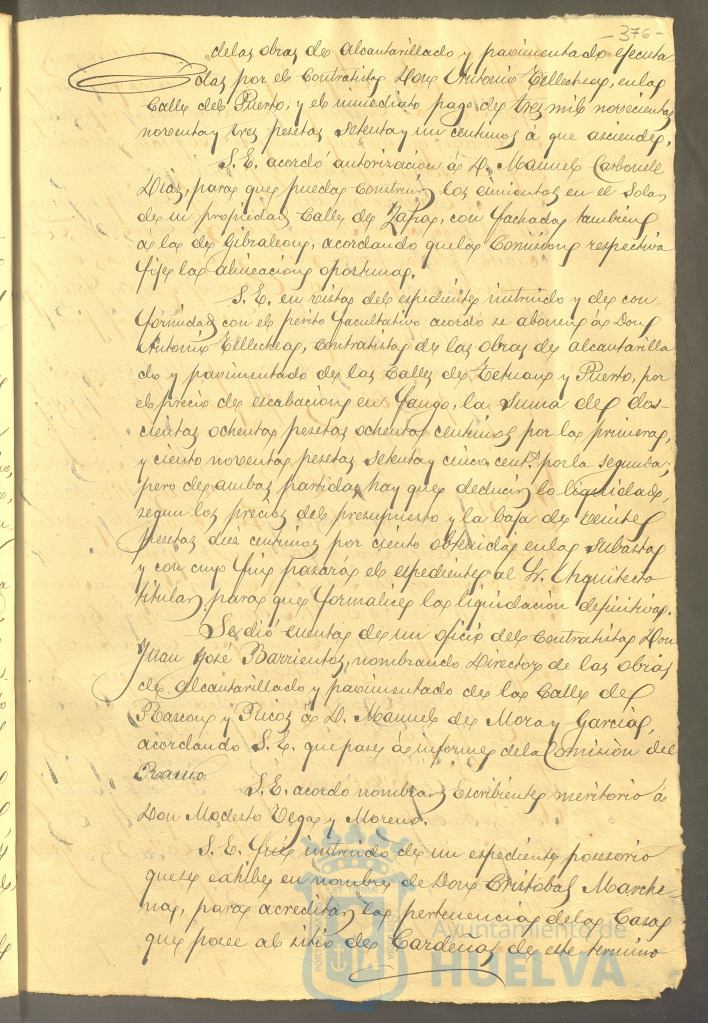 -376-
de las obras de alcantarillado y pavimentado ejecuta
das por el Contratista Don Antonio Tellechea, en la
Calle del Puerto, y el inmediato pago de tres mil novecientas
noventa y tres pesetas setenta y un centimos á que asciende.
S. E. acordó autorizacion á D. Manuel Carbonell
Diaz, para que pueda construir los cimientos en el Solar
de su propiedad Calle de Zafra, con fachada tambien
á la de Gibraleon, acordando que la Comision respectiva
fije la alineacion oportuna.
S. E. en vista del espediente instruido y de con-
formidad con el perito facultativo acordo se abone á Don
Antonio Tellechea, Contratista de las obras de alcantarilla
do y pavimentado de las Calles de Tetuan y Puerto, por
el precio de escabacion en fango, la suma de dos-
cientas ochenta pesetas ochenta centimos por la primera,
y ciento noventa pesetas setenta y cinco cents. por la segunda;
pero de ambas partidas hay que deducir lo liquidado,
segun los precios del presupuesto y la baja de veinte
pesetas diez centimos por ciento obtenida en la subasta
y con cuyo fin pasará el espediente al Sr. Arquitecto
titular, para que formalice la liquidacion definitiva.
Se dió cuenta de un oficio del Contratista Don
Juan José Barrientos, nombrando Director de las obras
de alcantarillado y pavimentado de la Calle del
Rascon y Ricos á D. Manuel de Mora y Garcia,
acordando S. E. que pase á informe de la Comisión del
Ramo.
S. E. acordó nombrar Escribiente meritorio á
Don Modesto Vega y Moreno.
S. E. fué instruido de un espediente posesorio
que se exhibe en nombre de Don Cristobal Marche
na, para acreditar la pertenencia de la Casa
que posee al sitio de Cardeñas de este termino
Ayuntamiento de
HUELVA